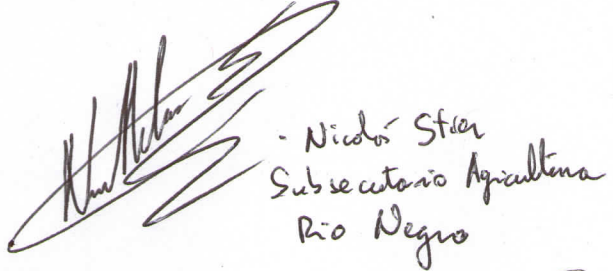 - Nicolás Stier
Subsecretario Agricultura
Río Negro